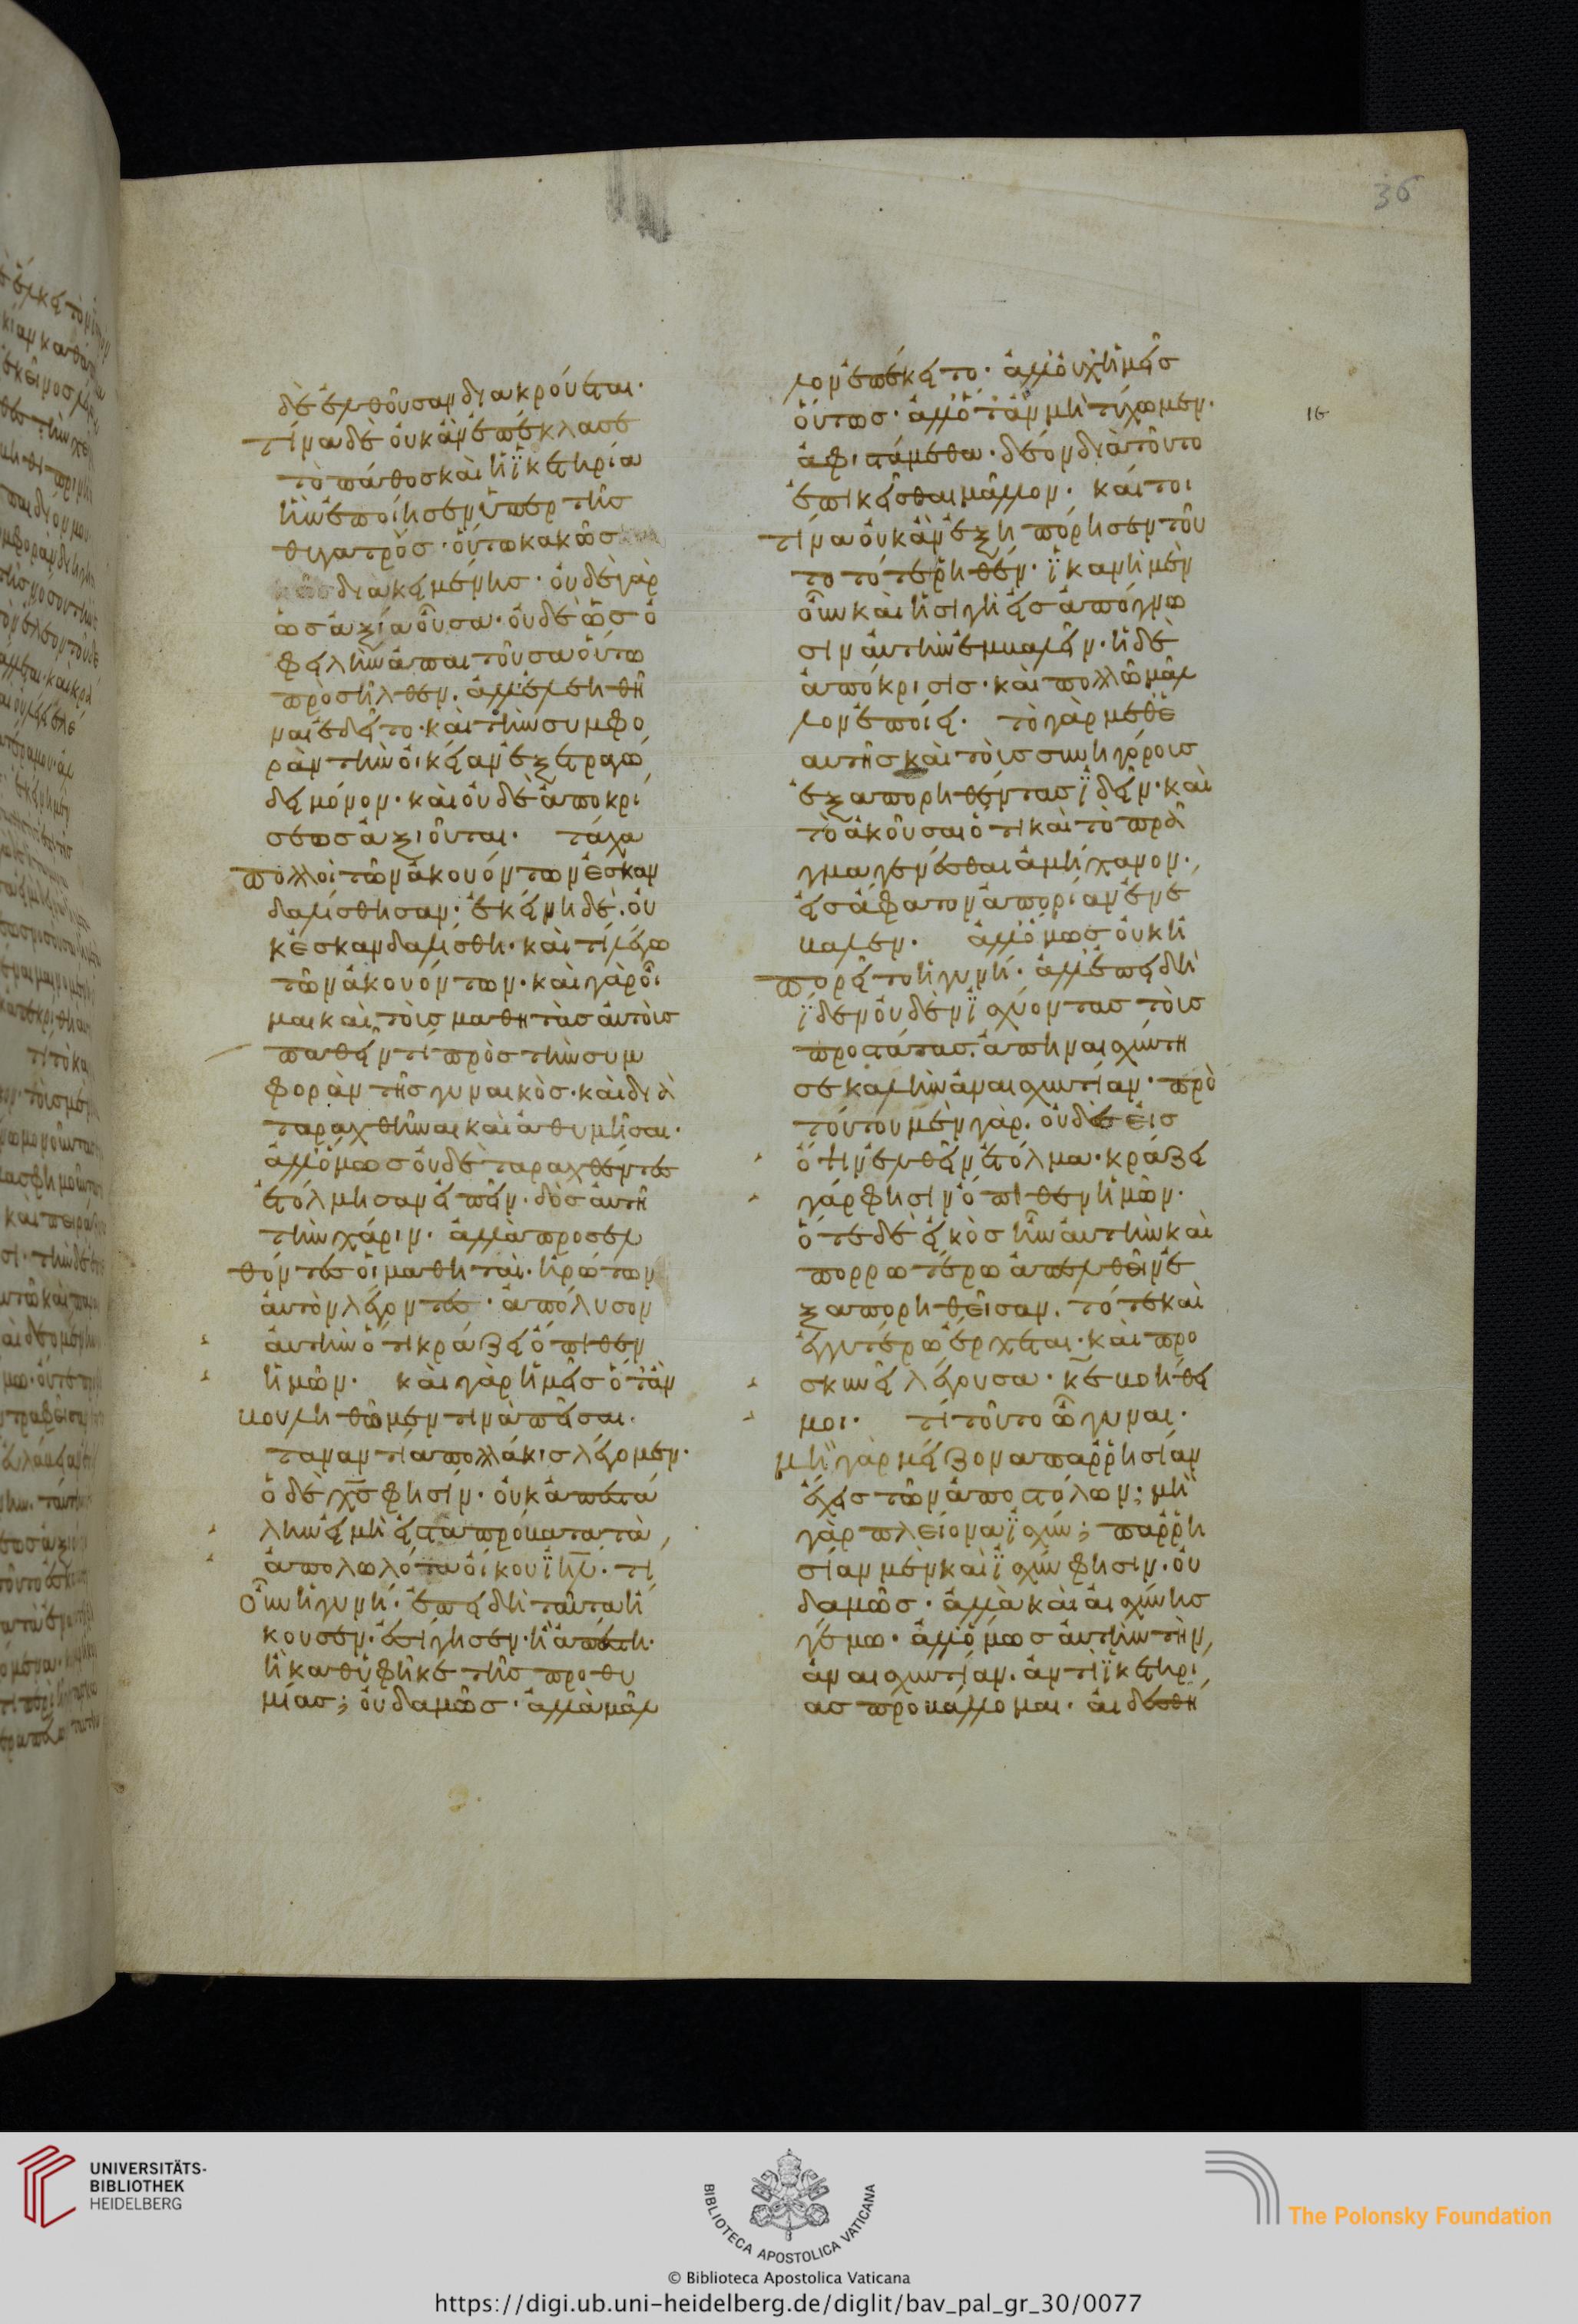 36
δὲ ἐλθοῦσαν διακρούεται·
τίνα δὲ οὐκ ἂν ἐπέκλασε
τὸ πάθος καὶ ἡ ἱκετηρία
ἣν ἐποίησεν ὑπὲρ τῆς
θυγατρὸς· οὕτω κακῶς
διακειμένης· οὐδὲ γὰρ
ὡς ἀξία οὖσα· οὐδὲ ὡς ὀ
φειλὴν ἀπαιτοῦσα οὕτω
προσῆλθεν· ἀλλ' ἐλεηθῆ
ναι ἐδεῖτο· καὶ τὴν συμφο
ρὰν τὴν οἰκείαν ἐξετραγώ
δει μόνον· καὶ οὐδὲ ἀποκρί
σεως ἀξιοῦται· τάχα
πολλοὶ τῶν ἀκουόντων ἐσκαν
δαλίσθησαν· ἐκείνη δὲ οὐ
κ ἐσκανδαλίσθη· καὶ τί λέγω
τῶν ἀκουόντων· καὶ γὰρ οἶ
μαι καὶ τοὺς μαθητὰς αὐτοὺς
παθεῖν τὶ πρὸς τὴν συμ
φορὰν τῆς γυναικὸς· καὶ δια
ταραχθῆναι καὶ ἀθυμῆσαι·
ἀλλ' ὅμως οὐδὲ ταραχθέντες
ἐτόλμησαν εἰπεῖν· δὸς αὐτῆ
τὴν χάριν· ἀλλὰ προσελ
θόντες οἱ μαθηταὶ· ἠρώτων
αὐτὸν λέγοντες· ἀπόλυσον
αὐτὴν ὅτι κράζει ὄπισθεν
ἡμῶν· καὶ γὰρ ἡμεῖς ὅταν
βουληθῶμεν τινὰ πεῖσαι·
ταναντία πολλάκις λέγομεν·
ὁ δὲ χς φησίν· οὐκ ἀπεστά
λην εἰ μὴ εἰς τὰ πρόβατα τὰ
ἀπολωλότα οἴκου ιηλ· τί
οὖν ἡ γυνή· ἐπειδὴ ταῦτα ἤ
κουσεν· ἐσίγησεν· ἢ ἀπέστη·
ἢ καθυφῆκε τῆς προθυ
μίας; οὐδαμῶς· ἀλλὰ μᾶλ
λον ἐπέκειτο· ἀλλ' οὐχ ἡμεῖς
οὕτως· ἀλλ' ὅταν μὴ τύχωμεν·
ἀφιστάμεθα· δέον διὰ τοῦτο
ἐπικεῖσθαι μᾶλλον· καίτοι
τίνα οὐκ ἂν ἐξηπόρησεν τοῦ
το τότε ῥηθέν· ἱκανὴ μὲν
οὖν καὶ ἡ σιγὴ εἰς ἀπόγνω
σιν αὐτὴν ἐμβαλεῖν· ἡ δὲ
ἀπόκρισις· καὶ πολλῶ μᾶλ
λον ἐποίει· τὸ γὰρ μεθ' ἑ
αυτῆς καὶ τοὺς συνηγόρους
ἐξαπορηθέντας ἰδεῖν· καὶ
τὸ ἀκοῦσαι ὅτι καὶ τὸ πρᾶ
γμα γενέσθαι ἀμήχανον·
εἰς ἄφατον ἀπορίαν ἐνέ
βαλεν· ἀλλ' ὅμως οὐκ ἠ
πορεῖτο ἡ γυνή· ἀλλ' ἐπειδὴ
ἴδεν οὐδὲν ἰσχύοντας τοὺς
προστάτας· ἀπηναισχύντη
σε καλὴν ἀναισχυντίαν· πρὸ
τούτου μὲν γὰρ· οὐδὲ εἰς
ὄψιν ἐλθεῖν ἐτόλμα· κράζει
γάρ φησιν ὄπισθεν ἡμῶν·
ὅτε δὲ εἰκὸς ἦν αὐτὴν καὶ
πορρωτέρω ἀπελθεῖν ἐ
ξαπορηθεῖσαν· τότε καὶ
ἐγγυτέρω ἔρχεται· καὶ προ
σκυνεῖ λέγουσα· κε βοήθει
μοι· τί τοῦτο ὦ γύναι·
μὴ γὰρ μείζονα παρρησίαν
ἔχεις τῶν ἀποστόλων; μὴ
γὰρ πλείονα ἰσχύν; παρρη
σίαν μὲν καὶ ἰσχύν φησιν· οὐ
δαμῶς· ἀλλὰ καὶ αἰσχύνης
γέμω· ἀλλ' ὅμως αὐτὴν τὴν
ἀναισχυντίαν· ἀντὶ ἱκετηρί
ας προβάλλομαι· αἰδεσθῆ
16
UNIVERSITÄTS-
BIBLIOTHEK
HEIDELBERG
BIBLIOTECA APOSTOLICA VATICANA
The Polonsky Foundation
© Biblioteca Apostolica Vaticana
https://digi.ub.uni-heidelberg.de/diglit/bav_pal_gr_30/0077